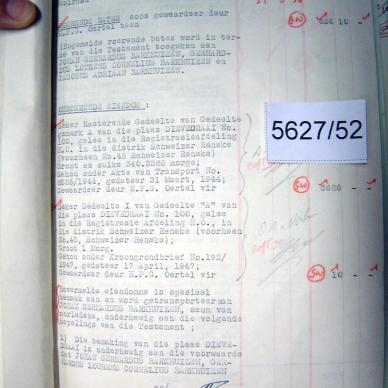 ROERENDE BATES soos gewaardeer deur
H.P.G. Oertel teen
484 10 -
(Bogemelde roerende bates word in ter-
me van die Testament toegeken aan
JOHAN GERHARDUS BARKHUIZEN, GERHAR-
DUS LOURENS CORNELIUS BARKHUIZEN en
JACOBUS ADRIAAN BARKHUIZEN.
ONROERENDE EIENDOM :
Seker Resterende Gedeelte van Gedeelte
gemerk A van die plaas DIEVEDRAAI No.
100, geleë in die Registrasieafdeling
H.O. in die distrik Schweizer Reneke
(voorheen No.45 Schweizer Reneke)
Groot as sulks 340,5388 morge;
Gehou onder Akte van Transport No.
8586/1944, gedateer 31 Maart, 1944;
Gewaardeer deur H.P.G. Oertel vir
3486 - -
5627/52
Seker Gedeelte I van Gedeelte "A" van
die plaas DIEVEDRAAI No. 100, geleë
in die Registrasie Afdeling H.O., in
die distrik Schweizer Reneke; (voorheen
No.45, Schweizer Reneke);
Groot 1 Morg.
Gehou onder Kroongrondbrief No.192/
1947, gedateer 17 April, 1947;
Gewaardeer deur H.P.G. Oertel vir
10 - -
Bovermelde eiendomme is spesiaal
bemaak aan en word getransporteer aan
JOHAN GERHARDUS BARKHUIZEN, seun van
oorledene, onderhewig aan die volgende
bepalings van die Testament ;
1) Die bemaking van die plaas DIEVE-
DRAAI is onderhewig aan die voorwaarde
dat JOHAN GERHARDUS BARKHUIZEN, GER-
HARDUS LOURENS CORNELIUS BARKHUIZEN